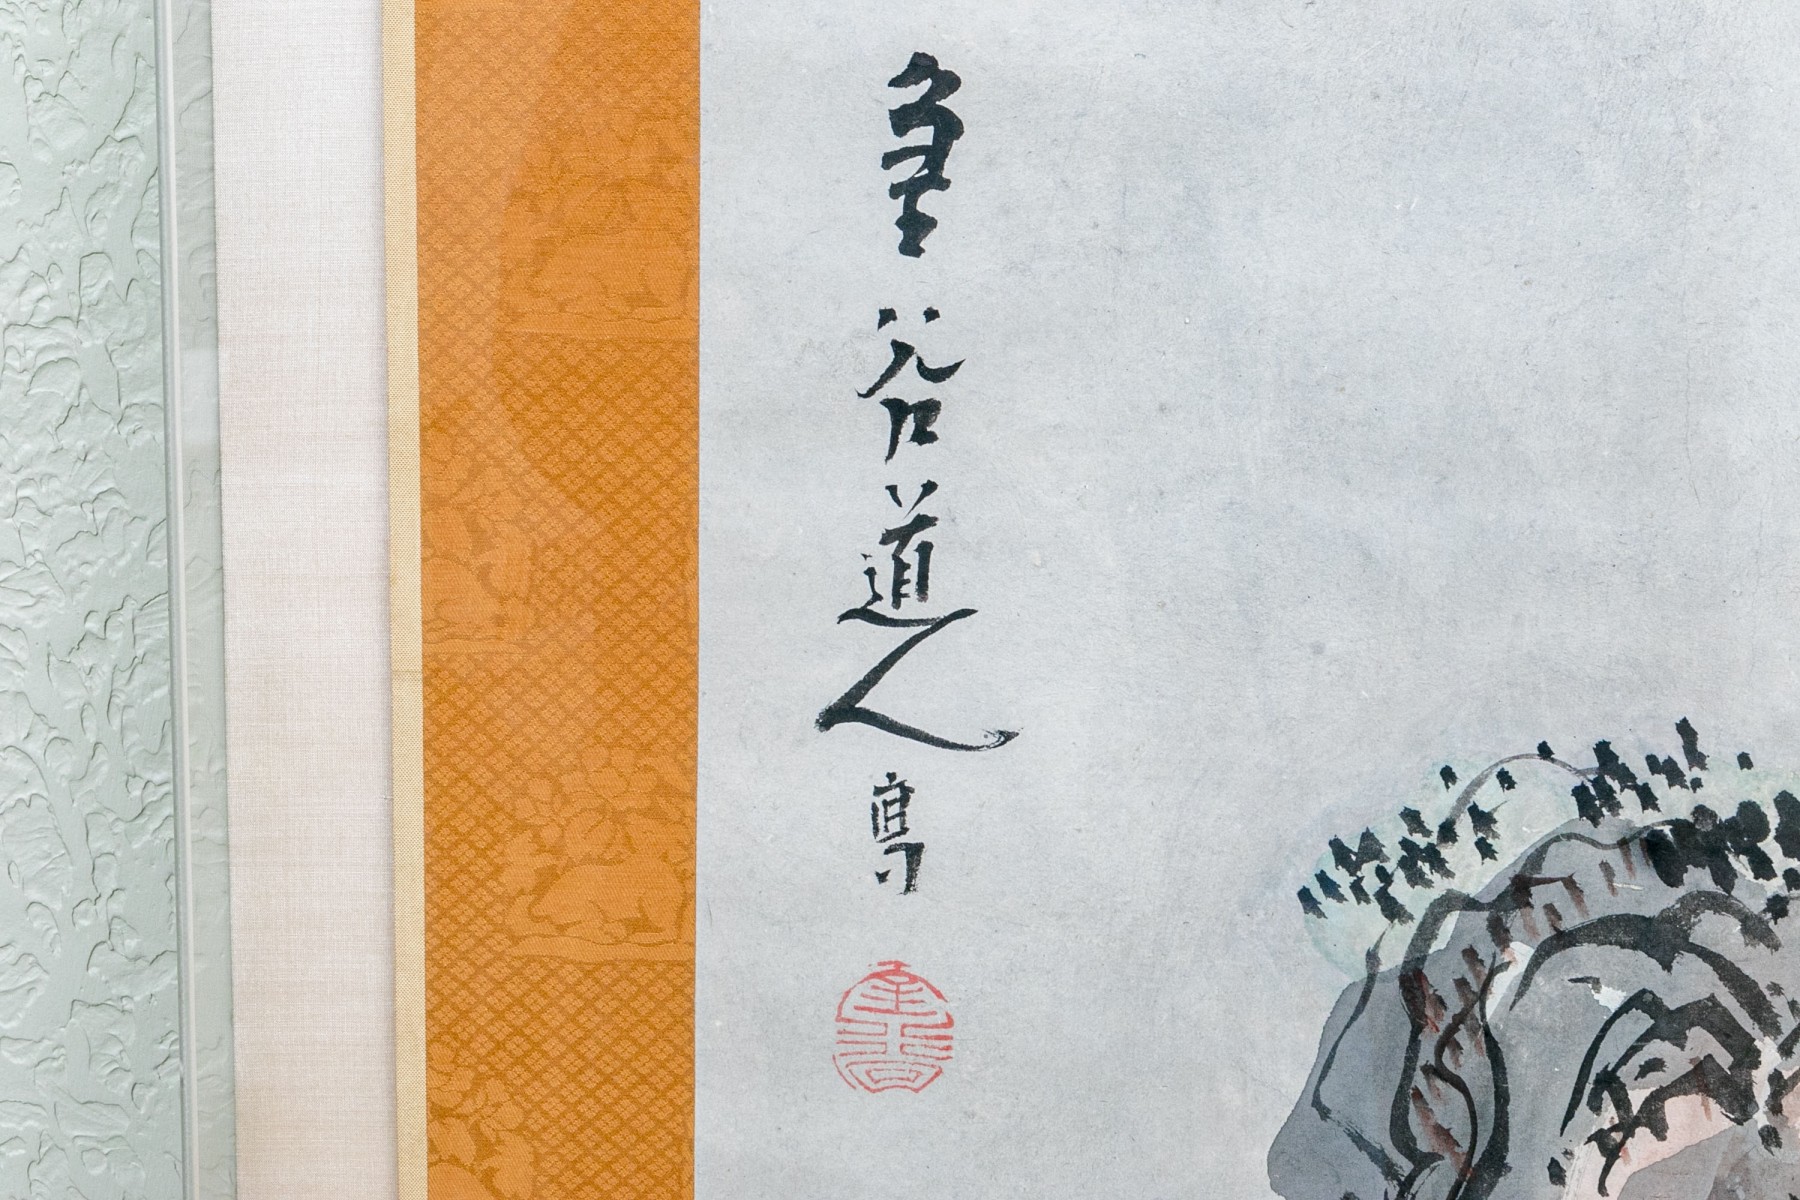 谷道人寫